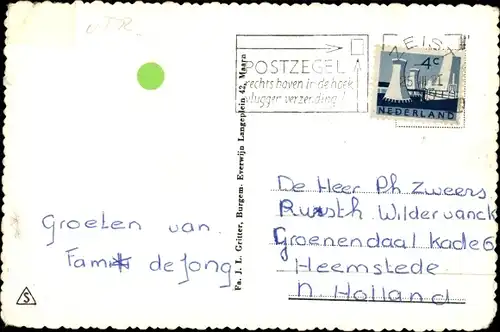 POSTZEGEL
rechts boven in de hoek
vlugger verzending!
4c
NEDERLAND
Groeten van
Fam de Jong
Fa. J. L. Gritter, Burgem. Everwijn Langeplein 42, Maarn
De Heer Ph Zweers
Rusth Wildervanck
Groenendaal kade 6
Heemstede
N. Holland
S